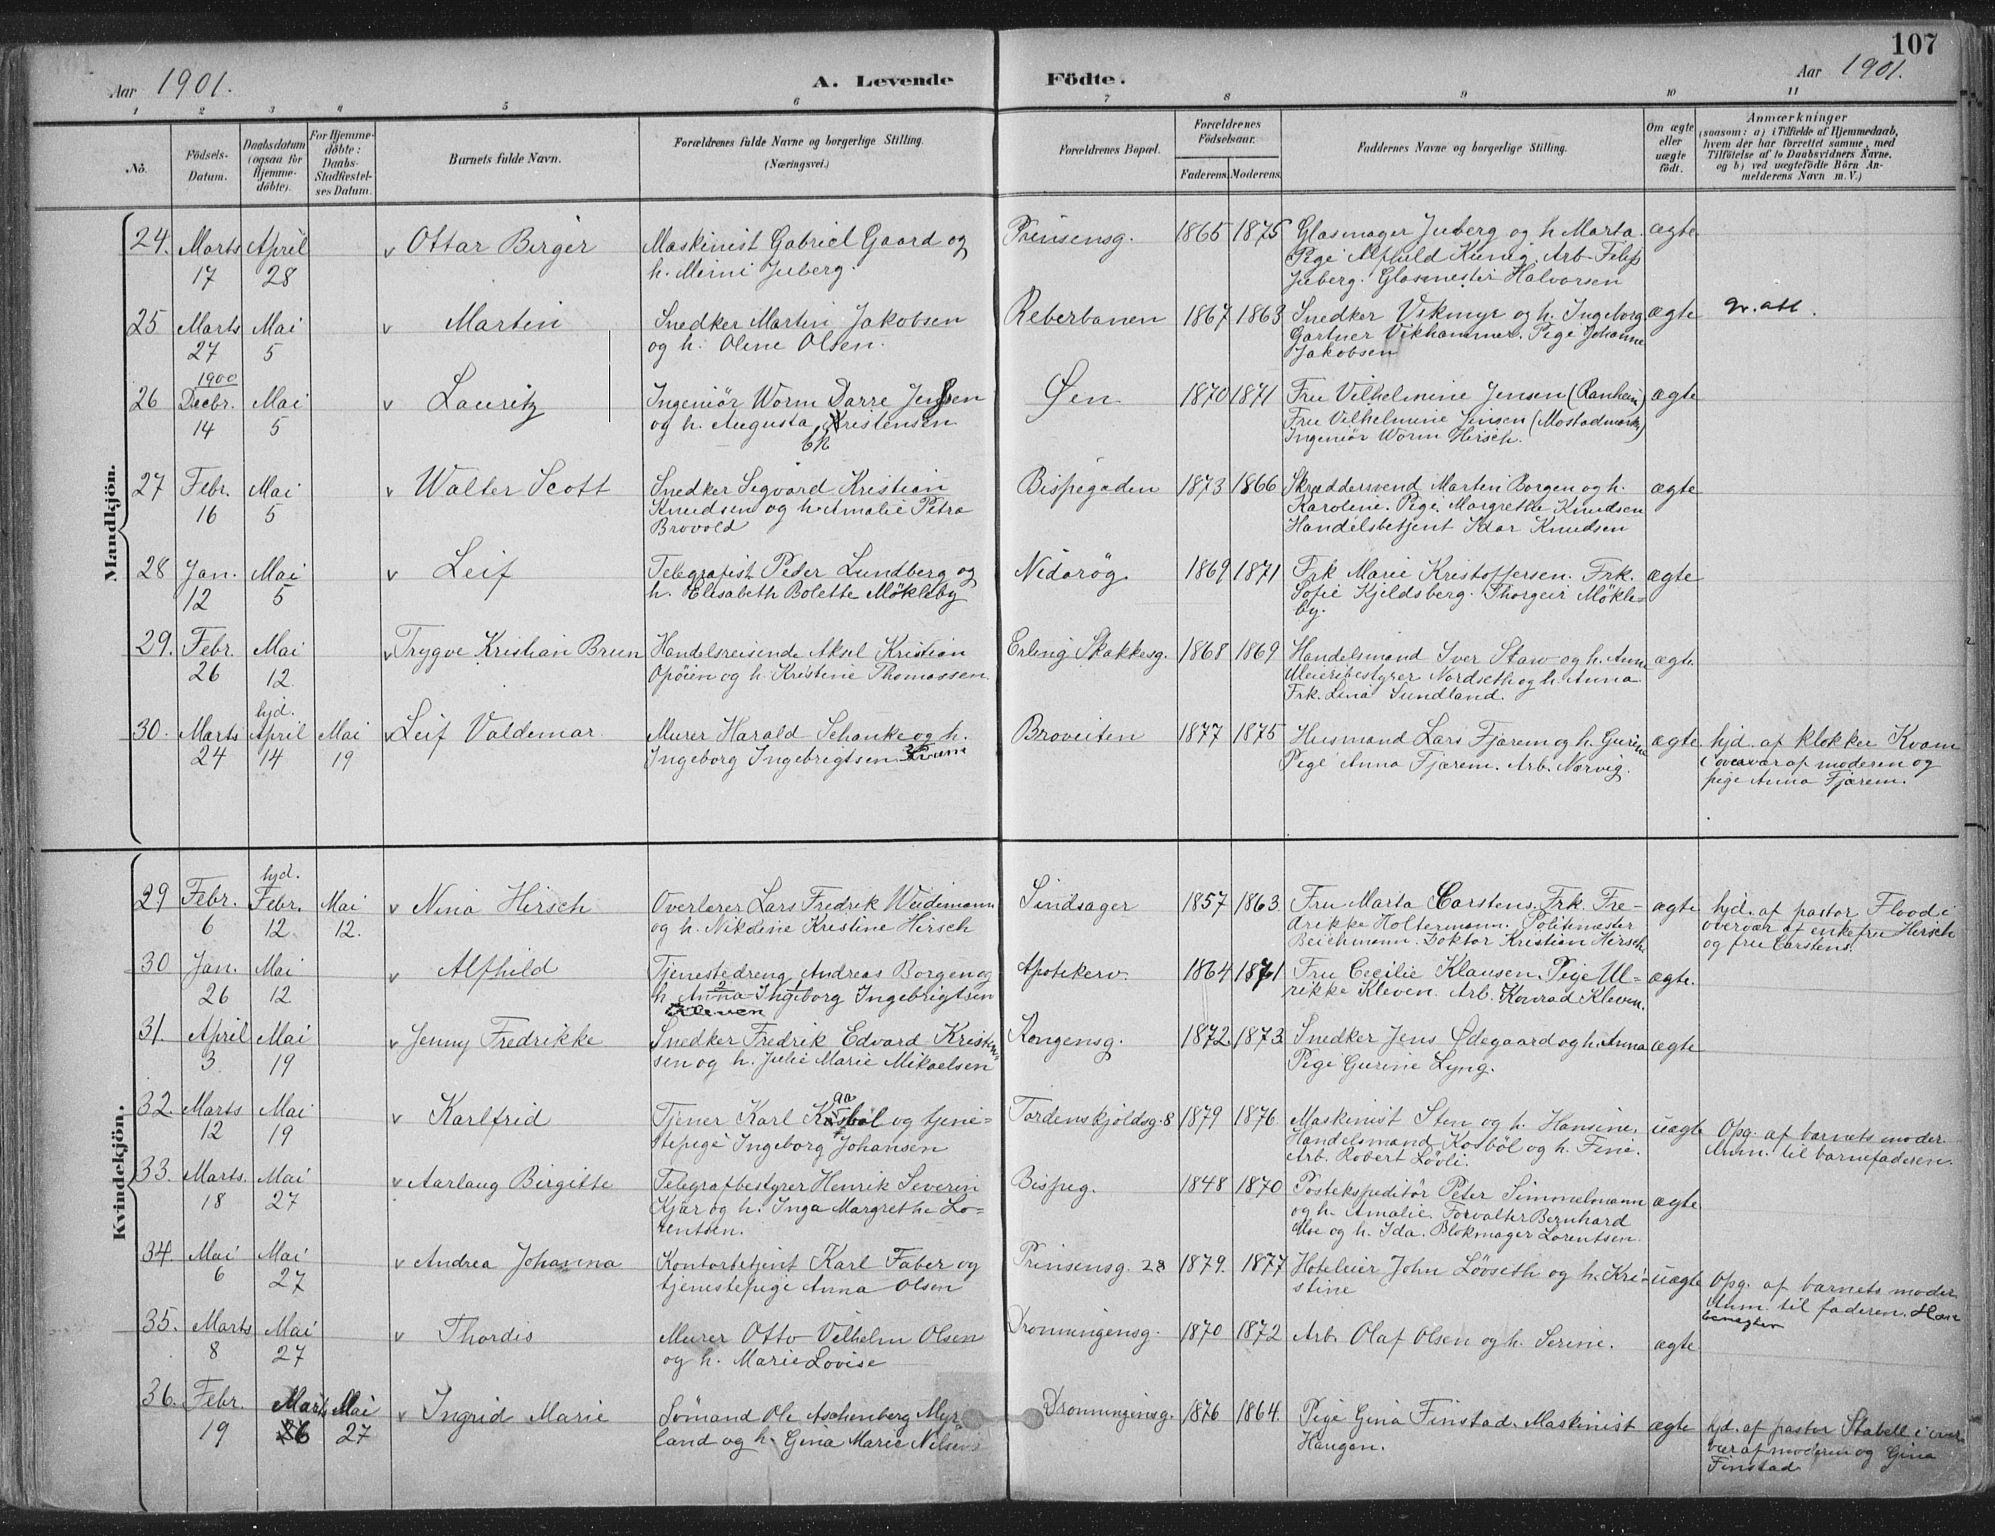 107
Aar 1901. A. Levende Födte. Aar 1901.
1 2 3 4 5 6 7 8 9 10 11
No. Födsels-Datum. Daabsdatum (ogsaa for Hjemme-döbte). For Hjemme-döbte: Daabs-Stadfæstel-ses Datum. Barnets fulde Navn. Forældrenes fulde Navne og borgerlige Stilling. (Næringsvei.) Forældrenes Bopæl. Forældrenes Födselsaar. Faderens. Moderens. Faddernes Navne og borgerlige Stilling. Om ægte eller uægte födt. Anmærkninger (saasom: a) i Tilfælde af Hjemmedaab, hvem der har forrettet samme, med Tilföielse af to Daabsvidners Navne, og b) ved uægtefödte Börn An-melderens Navn m. V.)
Mandkjön.
24. Marts April v Ottar Birger Maskinist Gabriel Gaard og Prinsensg. 1865 1875 Glasmager Juberg og h. Marta. ægte
17 28 h. Mimi Juberg. Pige Alfhild Kunig. Arb. Filip
Juberg. Glasmester Halvorsen
25 Marts Mai v Martin Snedker Martin Jakobsen Reberbanen 1867 1863 Snedker Vikmyr og h. Ingeborg ægte av. att.
27 5 og h. Oline Olsen. Gartner Vikhammer. Pige Johanne
Jakobsen
1900
26 Decbr. Mai v Lauritz Ingeniör Worm Darre Jenssen Øen 1870 1871 Fru Vilhelmine Jensen (Ranheim) ægte
14 5 og h. Augusta Kristensen Fru Vilhelmine Jensen (Mostadmark)
Ch Ingeniör Worm Hirsch.
27 Febr. Mai v Walter Scott Snedker Sigvard Kristian Bispegaden 1873 1866 Skræddersvend Martin Borgen og h. ægte
16 5 Knudsen og h. Amalie Petra Karoline. Pige Margrethe Knudsen
Brovold Handelsbetjent Idar Knudsen
28 Jan. Mai v Leif Telegrafist Peder Lundberg og Nidarög. 1869 1871 Frk Marie Kristoffersen. Frk. ægte
12 5 h. Elisabeth Bolette Mökleby Sofie Kjeldsberg. Thorgeir Mökle-
by.
29. Febr. Mai v Trygve Kristian Brun Handelsreisende Aksel Kristian Erling Skakkesg. 1868 1869 Handelsmand Iver Staw og h. Anne ægte.
26 12 Opöien og h. Kristine Thomassen. Meieribestyrer Nordseth og h. Anna
Frk. Lina Sundland.
hjd.
30. Marts April Mai v Leif Valdemar Murer Harald Schanke og h. Broveiten 1877 1875 Husmand Lars Fjærem og h. Gurine ægte hjd. af klokker Kvam
24 14 19 Ingeborg Ingebrigtsen Kvam Pige Anna Fjærem. Arb. Norvig. i overvær af moderen og
pige Anna Fjærem.
Kvindekjön.
hjd.
29 Febr. Febr. Mai v Nina Hirsch Overlærer Lars Fredrik Weidemann Sindsager 1857 1863 Fru Marta Carstens. Frk. Fre- ægte hjd. af pastor Flood i
6 12 12. og h. Nikoline Kristine Hirsch drikke Holtermann. Politimester overvær af enkefru Hirsch
Beichmann. Doktor Kristian Hirsch og fru Carstens.
30 Jan. Mai v Alfhild Tjenestedreng Andreas Borgen og Apotekerv. 1864 1871 Fru Cecilie Klausen. Pige Ul- ægte.
26 12 h. Anna Ingeborg Ingebrigtsen rikke Kleven. Arb. Konrad Kleven.
Kleven
31. April Mai v Jenny Fredrikke Snedker Fredrik Edvard Kristen Kongensg. 1872 1873 Snedker Jens Ødegaard og h. Anna ægte
3 19 sen og h. Julie Marie Mikaelsen Pige Gurine Lyng.
32. Marts Mai v Karlfrid Tjener Karl Kasböl og tjene- Tordenskjoldsg. 8 1879 1876 Maskinist Sten og h. Hansine. uægte Opg. af barnets moder
12 19 stepige Ingeborg Johansen Handelsmand Kosböl og h. Fine. Anm. til barnefaderen.
Arb. Robert Lövli.
33. Marts Mai v Aarlaug Birgitte Telegrafbestyrer Henrik Severin Bispeg. 1848 1870 Postekspeditör Peter Simmelsmann ægte
18 27 Kjær og h. Inga Margrethe Lo- og h. Amalie. Forvalter Bernhard
rentsen. Moe og h. Ida. Blokmager Lorentsen.
34. Mai Mai v Andrea Johanna Kontorbetjent Karl Faber og Prinsensg. 28 1879. 1877 Hoteleier John Lövseth og h. Kri- uægte Opg. af barnets moder
6 27 tjenestepige Anna Olsen stine Anm. til faderen. Han
benegter
35. Marts Mai v Thordis Murer Otto Vilhelm Olsen Dronningensg. 1870 1872 Arb. Olaf Olsen og h. Serine. ægte
8 27 og h. Marie Lovise
36. Febr. Marts Mai v Ingrid Marie Sömand Ole Aschenberg Myr Dronningensg. 1876 1864 Pige Gina Finstad. Maskinist ægte hjd. af pastor Stabell i over
19 26 27 land og h. Gina Marie Nilsen Haugan. vær af moderen og Gina
Finstad